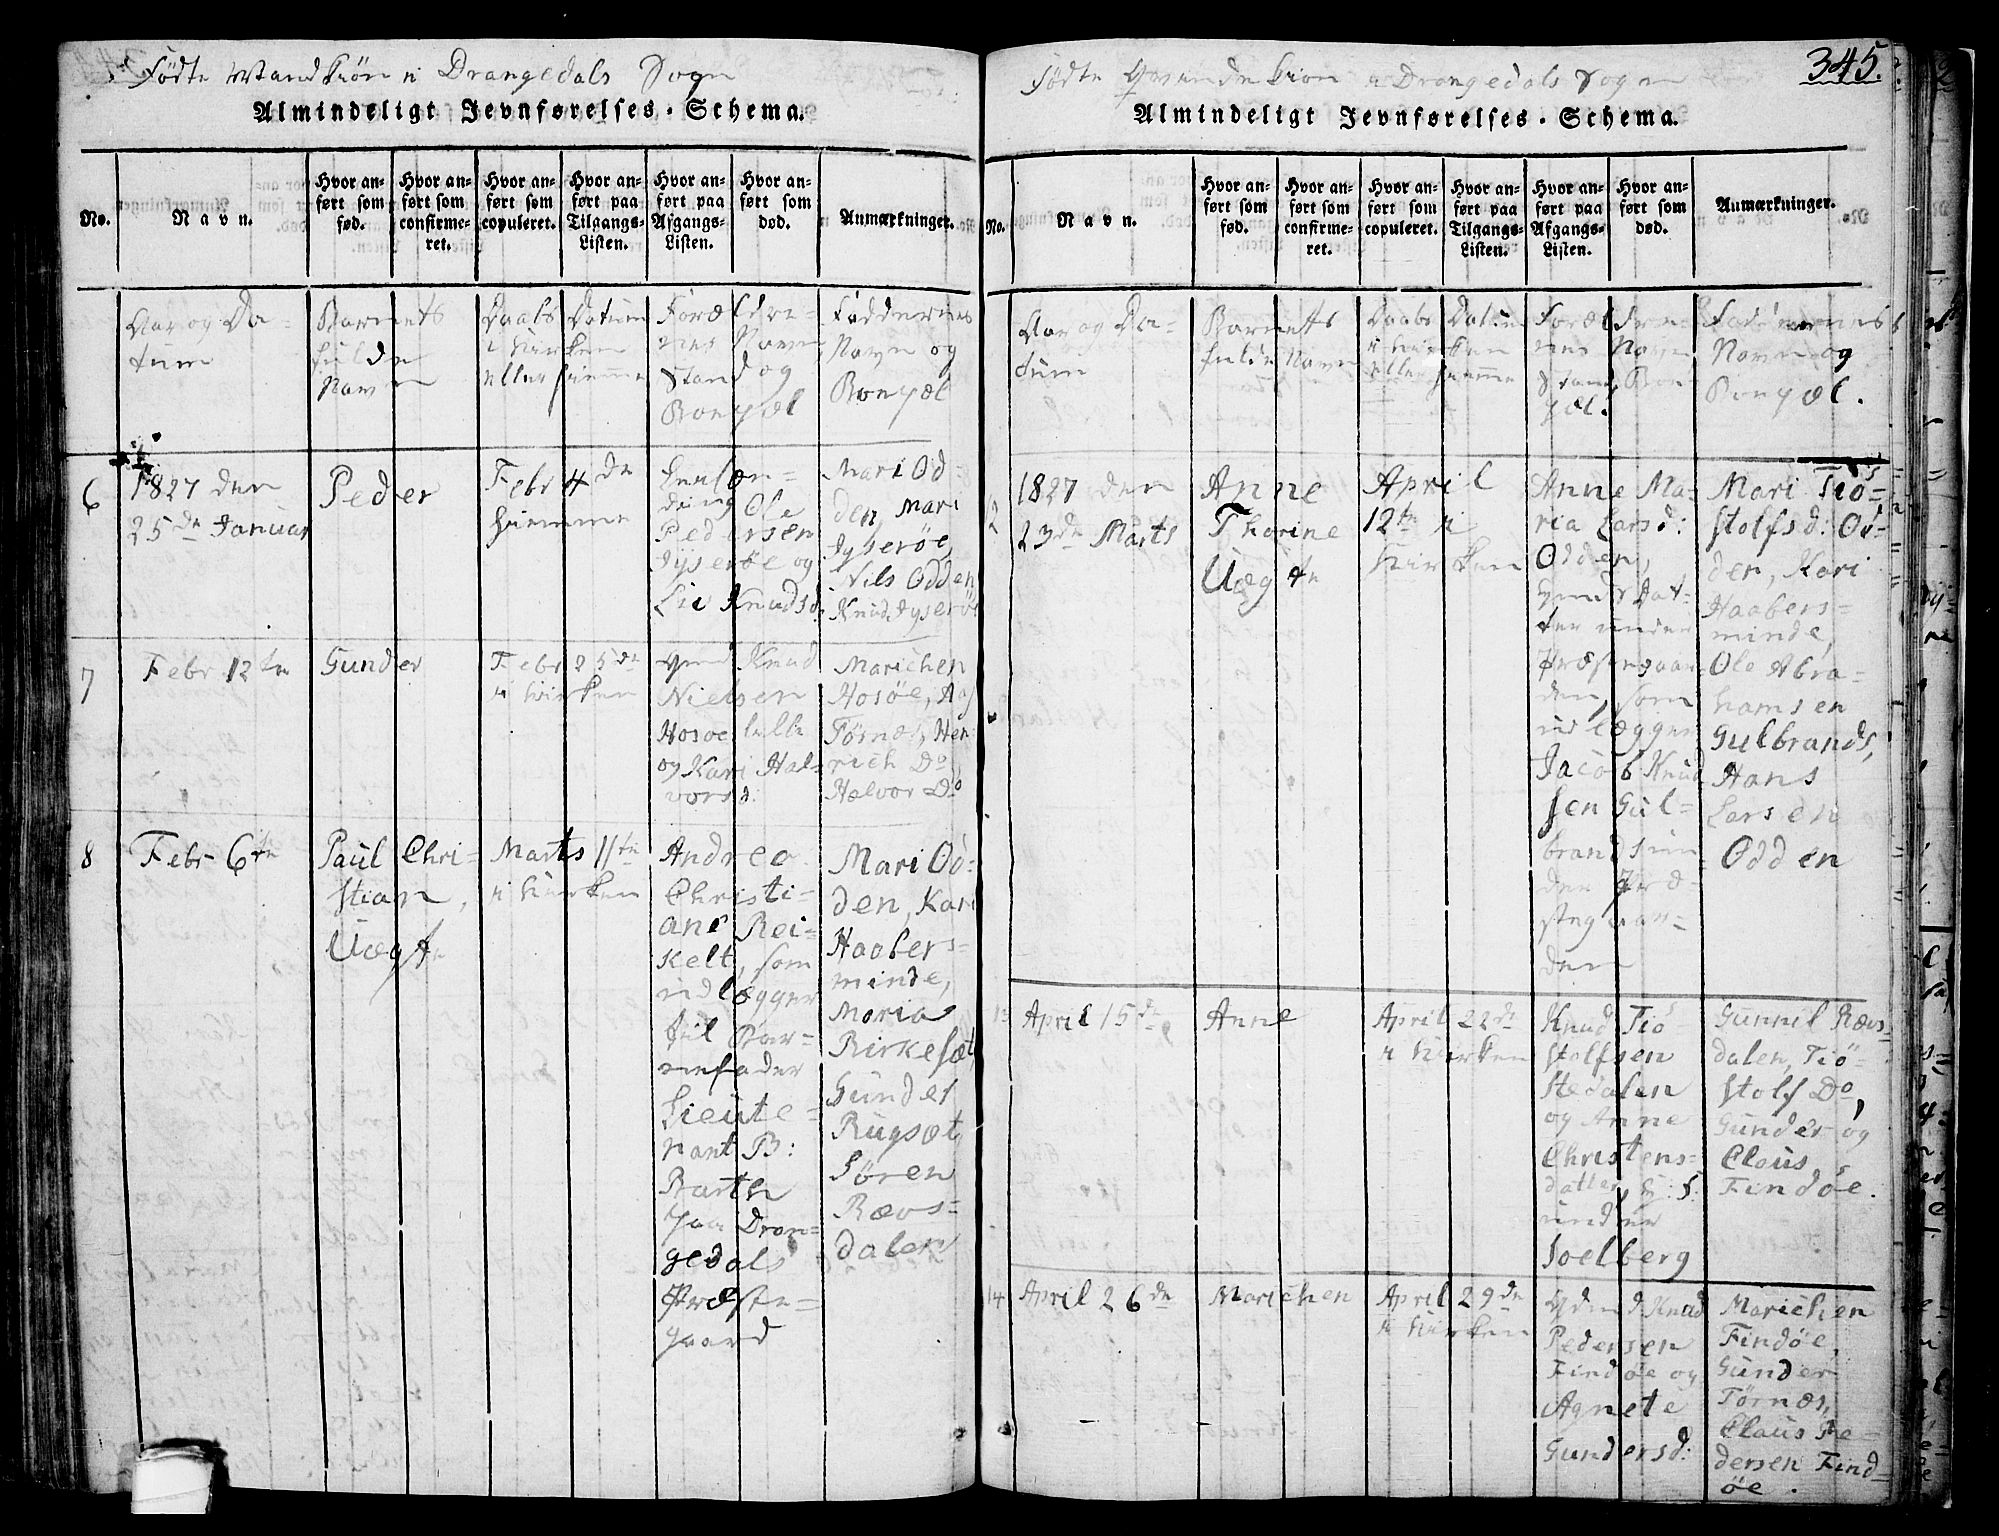 Fødte Mandkiøn i Drangedals Sogn
Almindeligt Jevnførelses-Schema.
No.
Navn.
Hvor an-
ført som
fød.
Hvor an-
ført som
confirme-
ret.
Hvor an-
ført som
copuleret.
Hvor an-
ført paa
Tilgangs-
Listen.
Hvor an-
ført paa
Afgangs-
Listen.
Hvor an-
ført som
død.
Anmærkninger.
Aar og Da-
tum
Barnets
fulde
Navn
Daabs Datum
i Kirken
eller hiemme
Foreldre-
nes Navn
Stand og
Bopæl
Faddernes
Navn og
Bopæl
6
1827 den
25de Januar
Peder
Febr 4de
hiemme
Ole
Pedersen
Jyserøe og
Liv Knudsd:
Mari Od-
den, Mari
Jyserøe,
Nils Odden
Knud Jyserøe
7
Febr 12te
Gunder
Febr 25de
i Kirken
Knud
Nielsen
Hosøe lille
og Kari Hal-
vorsd:
Marichen
Hosøe, Aas
Tørnes, Hen
rich Do,
Halvor Do
8
Febr 6te
Paul Chri-
stian,
Uægte
Marts 11te
i Kirken
Andrea
Christi-
ane Rei-
kelt, som
udlægger
til Bar-
nefader
Lieute-
nant B:
Barth
paa Dran-
gedals
Præste-
gaard
Mari Od-
den, Kari
Haabers-
minde,
Maria
Birkesæt,
Gunder
Rugsæt,
Søren
Rævs-
dalen
345.
Fødte Qvindekiøn i Drangedals Sogn
Almindeligt Jevnførelses-Schema.
No.
Navn.
Hvor an-
ført som
fød.
Hvor an-
ført som
confirme-
ret.
Hvor an-
ført som
copuleret.
Hvor an-
ført paa
Tilgangs-
Listen.
Hvor an-
ført paa
Afgangs-
Listen.
Hvor an-
ført som
død.
Anmærkninger.
Aar og Da-
tum
Barnets
fulde Navn
Daabs Datum
i Kirken
eller hiemme
Foreldre-
nes Navn
Stand, Bo-
pæl.
Faddernes
Navn og
Bopæl.
1827 den
23de Marts
Anne
Thorine
Uægte
April
12te i
Kirken
Anne Ma-
ria Larsd:
Odden,
Dat-
ter under
Præstegaar-
den, som
udlægger
Jacob Knud
sen Gul-
brands un-
der Præ-
stegaar-
den
Mari Tiø-
stolfsd: Od-
den, Kari
Haabers-
minde,
Ole Abra-
hamsen
Gulbrands,
Hans
Larsen
Odden
13
April 15de
Anne
April 22de
i Kirken
Knud Tiø-
stolfsen
Stedalen
og Anne
Christens-
datter
under
Soelberg
Gunnil Rævs-
dalen, Tiø-
stolf Do,
Gunder og
Claus
Findøe.
14
April 26de
Marichen
April 29de
i Kirken
Knud
Pedersen
Findøe og
Agnete
Gundersd:
Marichen
Findøe,
Gunder
Tørnæs,
Claus Pe-
dersen Find-
øe.